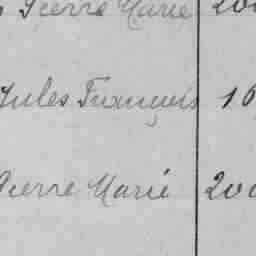 Pierre Marie 200
Jules François 16
Pierre Marie 200